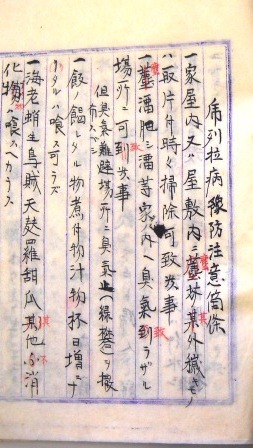 乕列拉病豫防注意箇條
一家屋内又ハ屋敷内ニ塵芥其外穢キモノ
ハ取片付時々掃除可致事
一塵溜肥シ溜等家内ヘ臭氣到ラザル
場所ニ可致事
但臭氣難避場所ニ臭氣止(緑礬)ヲ撒
布スベシ
一飯饐レタル物煮付物汁物杯日増ニナ
リタルハ喰ス可ラズ
一海老蛸生烏賊天麩羅甜瓜其他不消
化物喰スヘカラス